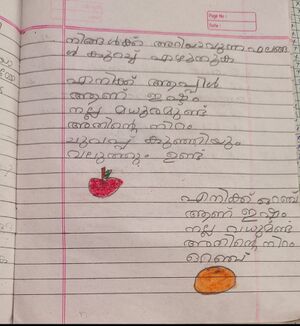 Page No :
Date :
നിങ്ങൾക്ക് അറിയാവുന്ന ഫലങ്ങ
ൾ കുറിച്ച് എഴുതുക
എനിക്ക് ആപ്പിൾ
ആണ് ഇഷ്ടം
നല്ല മധുരമുണ്ട്
അതിന്റെ നിറം
ചുവപ്പ് കുഞ്ഞിയും
വലുത്തും ഉണ്ട്
എനിക്ക് ഓറഞ്ച്
ആണ് ഇഷ്ടം
നല്ല
അതിന്റെ നിറം
ഓറഞ്ച്